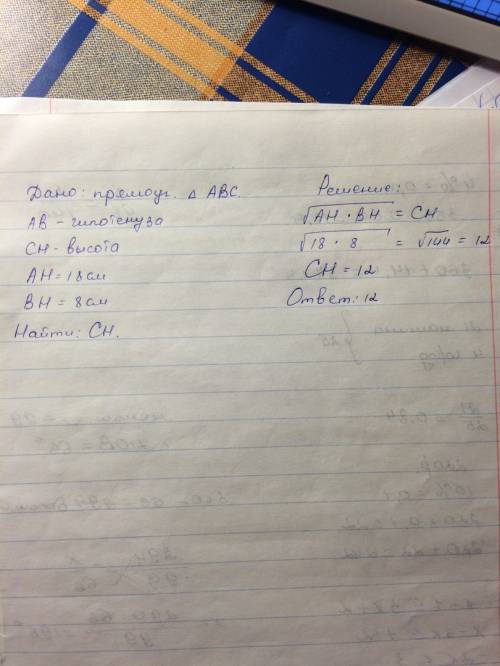 Дано: прямоуг. △ ABC.
AB - гипотенуза
CH - высота
AH = 18 см
BH = 8 см
Найти: CH.
Решение:
√AH · BH = CH
√18 · 8 = √144 = 12
CH = 12
Ответ: 12